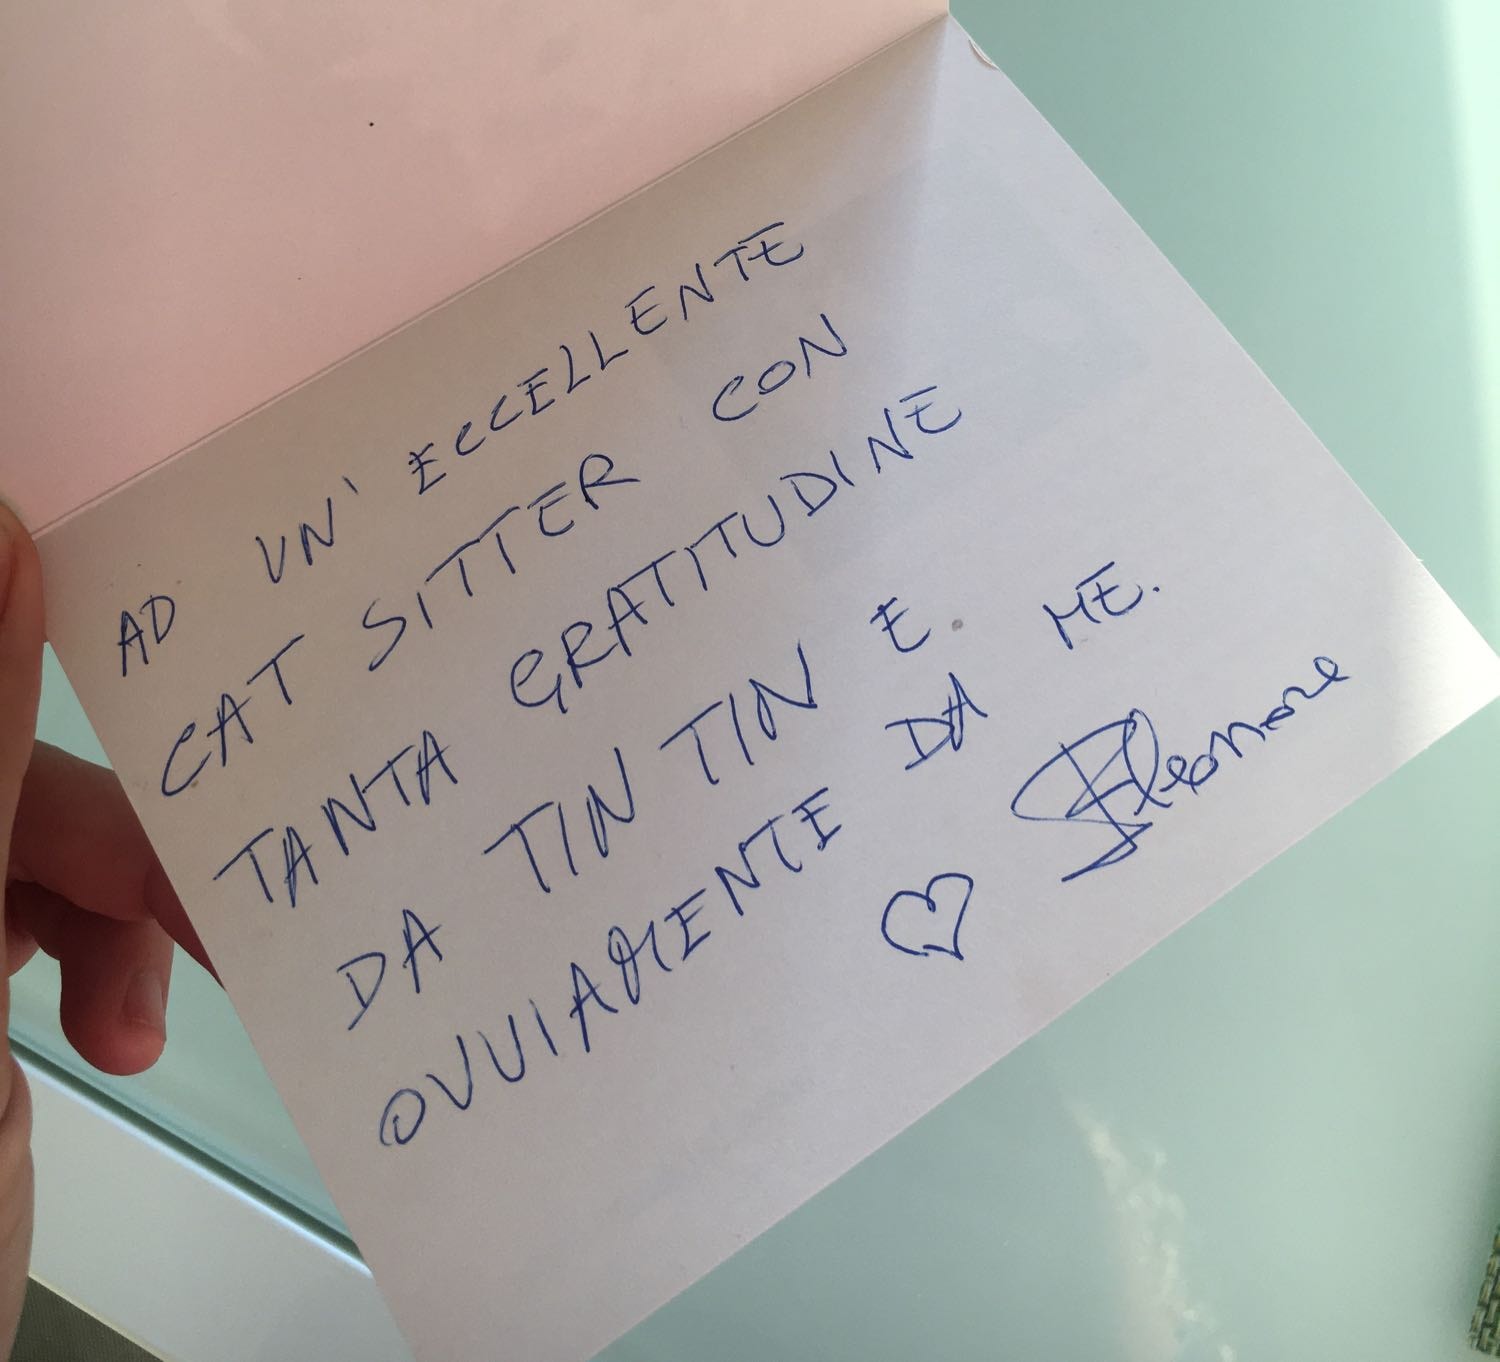 AD UN' ECCELLENTE
CAT SITTER CON
TANTA GRATITUDINE
DA TIN TIN E
OVVIAMENTE DA ME.
♡ Eleonore